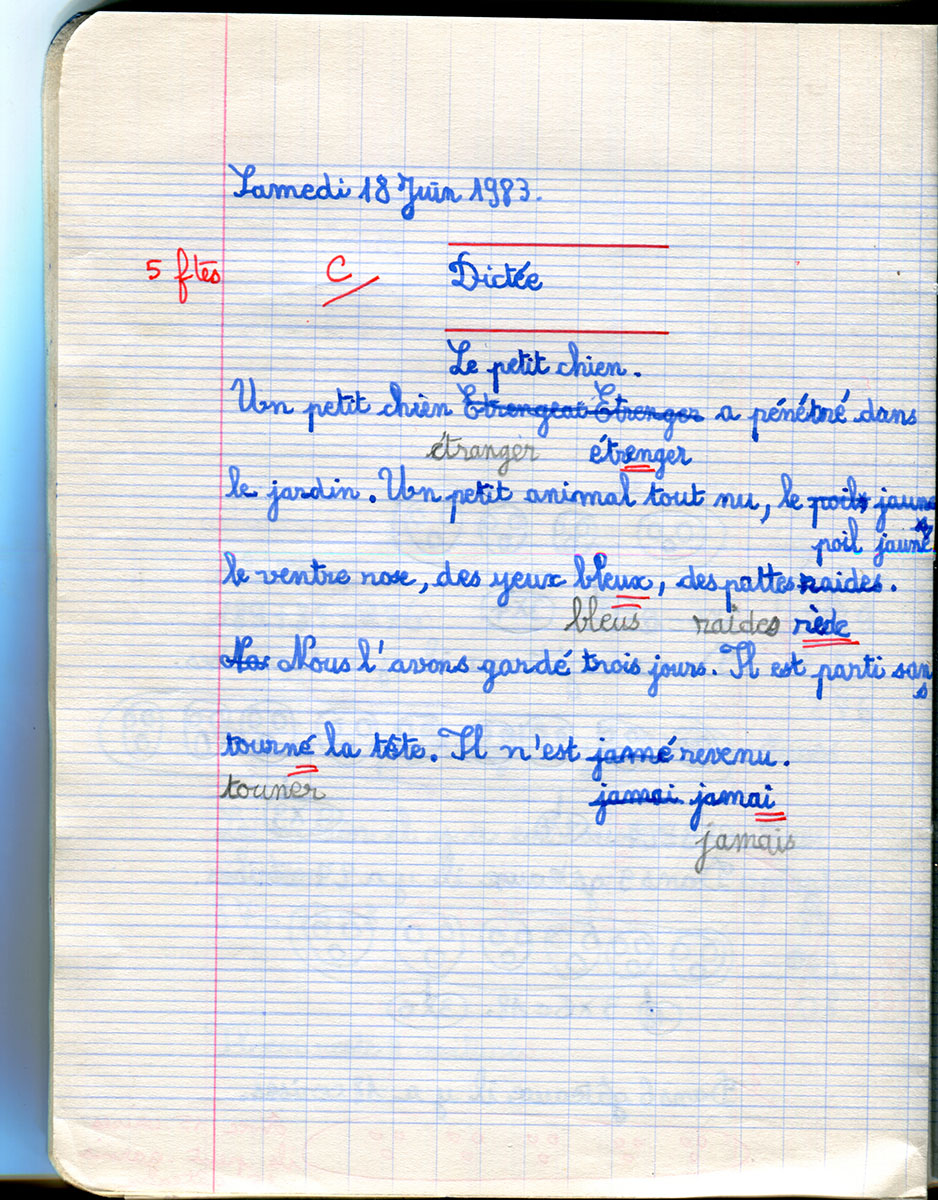 Samedi 18 Juin 1983.
5 ftes C Dictée
Le petit chien.
Un petit chien Etrengeai Etrenger a pénétré dans
étranger étrenger
le jardin. Un petit animal tout nu, le poils jaune
poil jaune
le ventre rose, des yeux bleux, des pattes raides.
bleus raides rède
No Nous l'avons gardé trois jours. Il est parti sans
tourné la tête. Il n'est jamé revenu.
touner jamai jamai
jamais